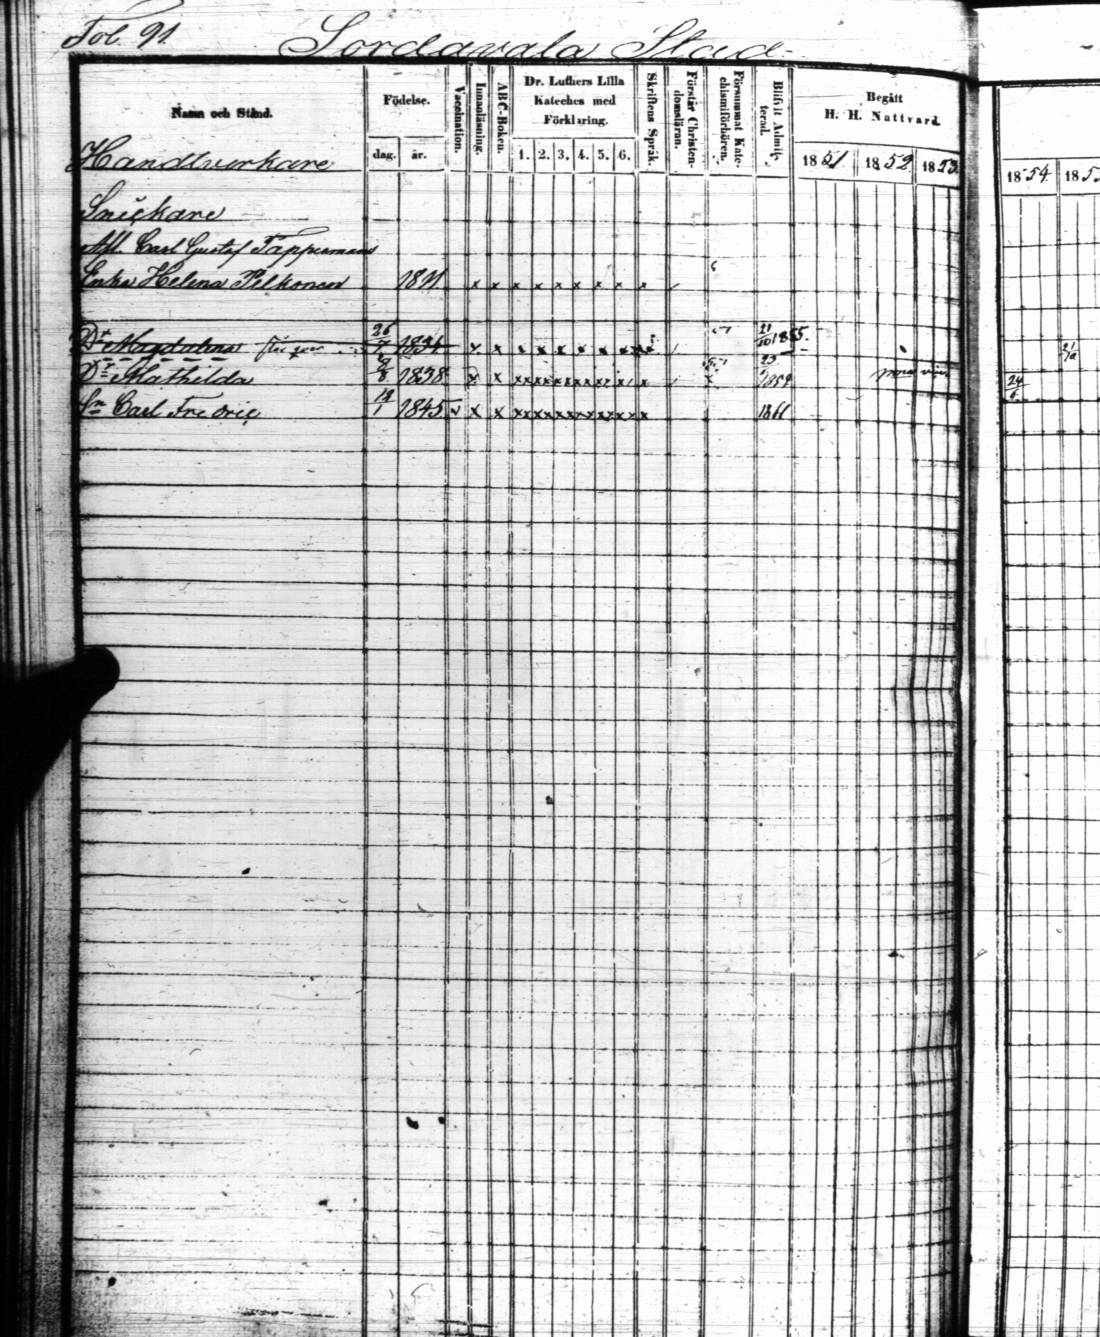 Fol. 91.
Sordavala Stad
Namn och Stånd.
Födelse.
dag.
år.
Vaccination.
Innanläsning.
ABC-Boken.
Dr. Luthers Lilla
Kateches med
Förklaring.
1. 2. 3. 4. 5. 6.
Skriftens Språk.
Förstår Christen-
domsläran.
Försummat Kate-
chismiförhören.
Blifvit Admit-
terad.
Begått
H. H. Nattvard.
1851 1852 1853
1854 185
Handtverkare
Snickare
Afl. Carl Gustaf Tappermans
Enka Helena Pelkonen
Dr Magdalena 26/7 1834 x x x x x x x x x 21/10 1855. 21/10
Dr Mathilda 1838 x x 1854 24/6
Sn Carl Fredric 14/1 1845 v x x 1861